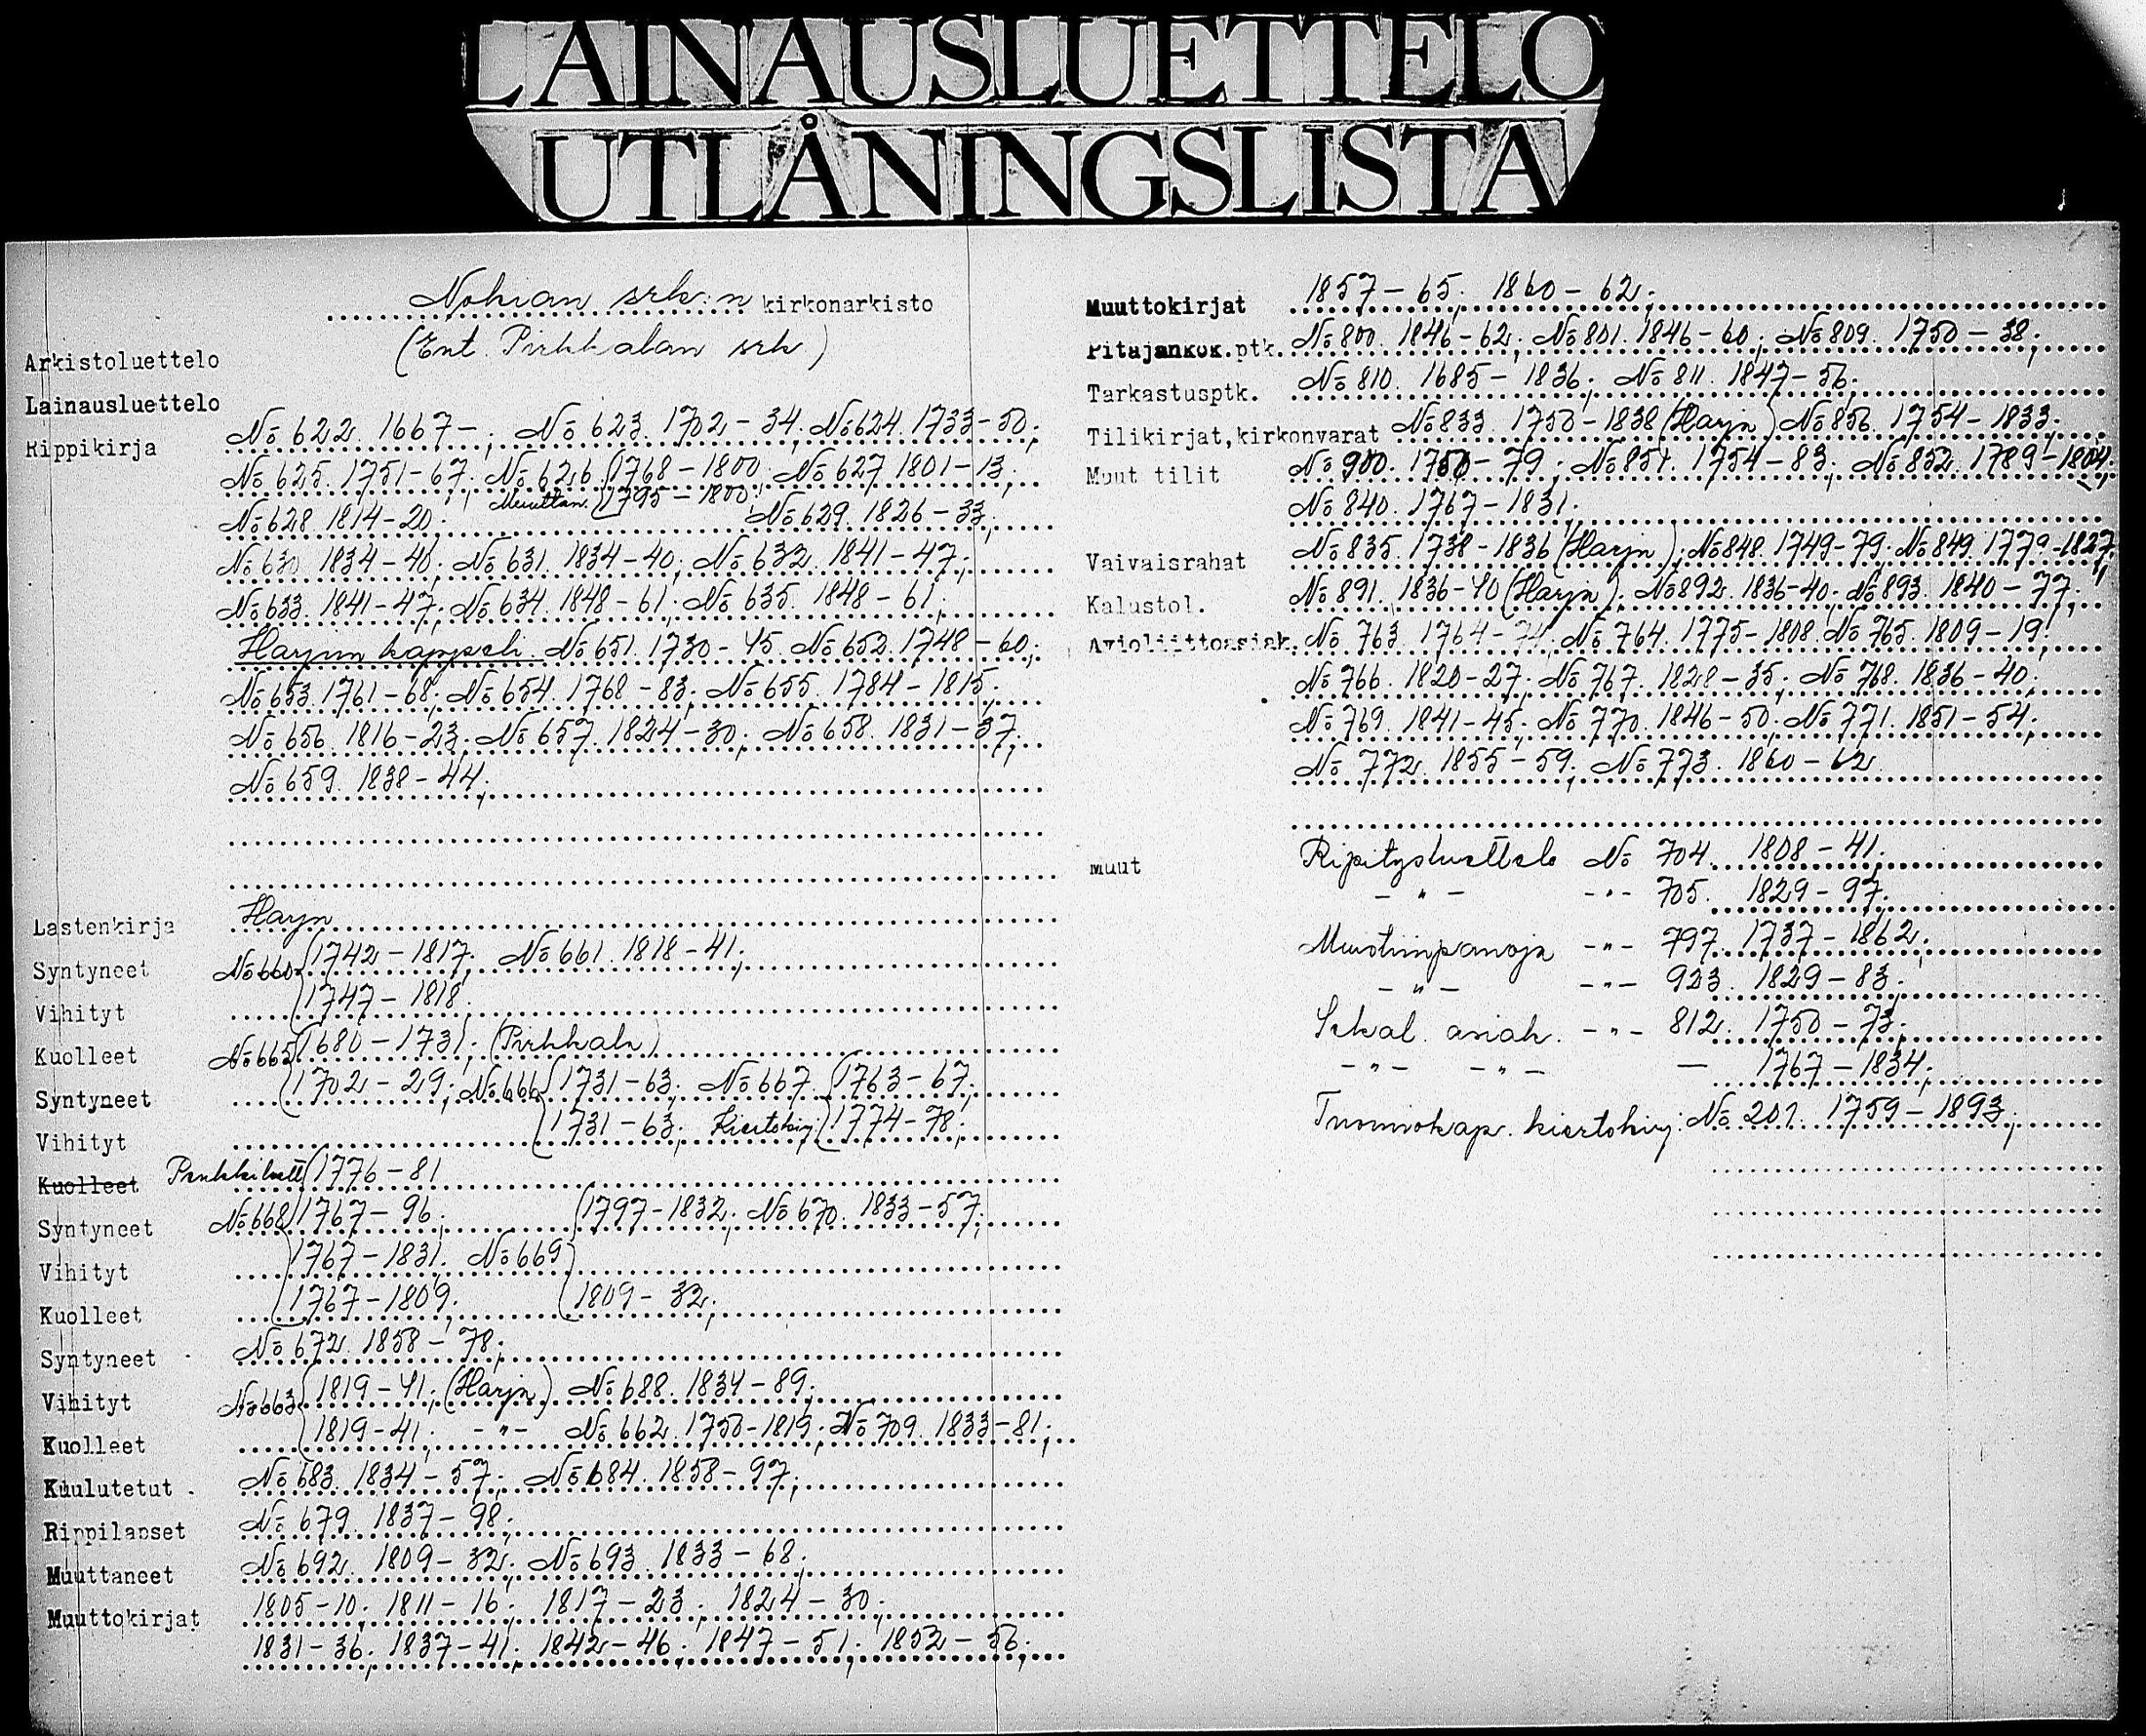 LAINAUSLUETTELO
UTLÅNINGSLISTA
Nokian srk:n kirkonarkisto
(Ent. Pirkkalan srk.)
Arkistoluettelo
Lainausluettelo
Rippikirja No 622. 1667-; No 623. 1702-34; No 624. 1733-50;
No 625. 1751-67; No 626. (1768-1800; No 627. 1801-13;
Muuttan. (1795-1800;
No 628. 1814-20; No 629. 1826-33;
No 630. 1834-40; No 631. 1834-40; No 632. 1841-47;
No 633. 1841-47; No 634. 1848-61; No 635. 1848-61;
Harjun kappeli. No 651. 1730-45. No 652. 1748-60;
No 653. 1761-68; No 654. 1768-83; No 655. 1784-1815;
No 656. 1816-23; No 657. 1824-30; No 658. 1831-37;
No 659. 1838-44;
Lastenkirja Harjn
Syntyneet No 660 (1742-1817; No 661. 1818-41;
Vihityt (1747-1818.
Kuolleet No 665 (1680-1731; (Pirkkala)
Syntyneet (1702-29; No 666 (1731-63; No 667. (1763-67;
Vihityt (1731-63; Kiertokirj. (1774-78;
Kuolleet Penkkiluett (1776-81
Syntyneet No 668 (1767-96; (1797-1832; No 670. 1833-57;
Vihityt (1767-1831. No 669
Kuolleet (1767-1809; (1809-32;
Syntyneet No 672. 1858-78;
Vihityt No 663 (1819-41; (Harjn) No 688. 1834-89;
Kuolleet (1819-41; -"- No 662. 1750-1819; No 709. 1833-81;
Kuulutetut No 683. 1834-57; No 684. 1858-97;
Rippilapset No 679. 1837-98;
Muuttaneet No 692. 1809-32; No 693. 1833-68;
Muuttokirjat 1805-10; 1811-16; 1817-23; 1824-30;
1831-36; 1837-41; 1842-46; 1847-51; 1852-56;
Muuttokirjat 1857-65; 1860-62;
Pitäjänkok.ptk. No 800. 1846-62; No 801. 1846-60; No 809. 1750-38;
Tarkastusptk. No 810. 1685-1836; No 811. 1847-56;
Tilikirjat,kirkonvarat No 833. 1750-1838 (Harjn) No 856. 1754-1833;
Muut tilit No 900. 1750-79; No 851. 1754-83; No 852. 1789-1804;
No 840. 1767-1831;
Vaivaisrahat No 835. 1738-1836 (Harjn); No 848. 1749-79; No 849. 1779-1827;
Kalustol. No 891. 1836-40 (Harjn); No 892. 1836-40; No 893. 1840-77;
Avioliittoasiak. No 763. 1764-74; No 764. 1775-1808. No 765. 1809-19;
No 766. 1820-27; No 767. 1828-35; No 768. 1836-40;
No 769. 1841-45; No 770. 1846-50; No 771. 1851-54;
No 772. 1855-59; No 773. 1860-62
Muut Ripitysluettelo No 704. 1808-41;
-"- -"- 705. 1829-97;
Muistiinpanoja -"- 797. 1737-1862;
-"- -"- 923. 1829-83;
Sekal. asiak. -"- 812. 1750-73;
-"- -"- — 1767-1834;
Tuomiokap. kiertokirj: No 201. 1759-1893;